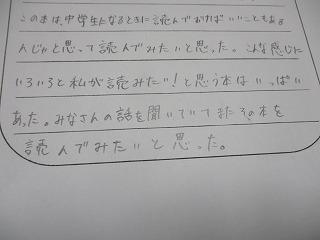 この本は中学生になるときに読んでおけばいいこともある
んじゃと思って読んでみたいと思った。こんな感じに
いろいろと私が読みたい!と思う本はいっぱい
あった。みなさんの話を聞いていてまたその本を
読んでみたいと思った。